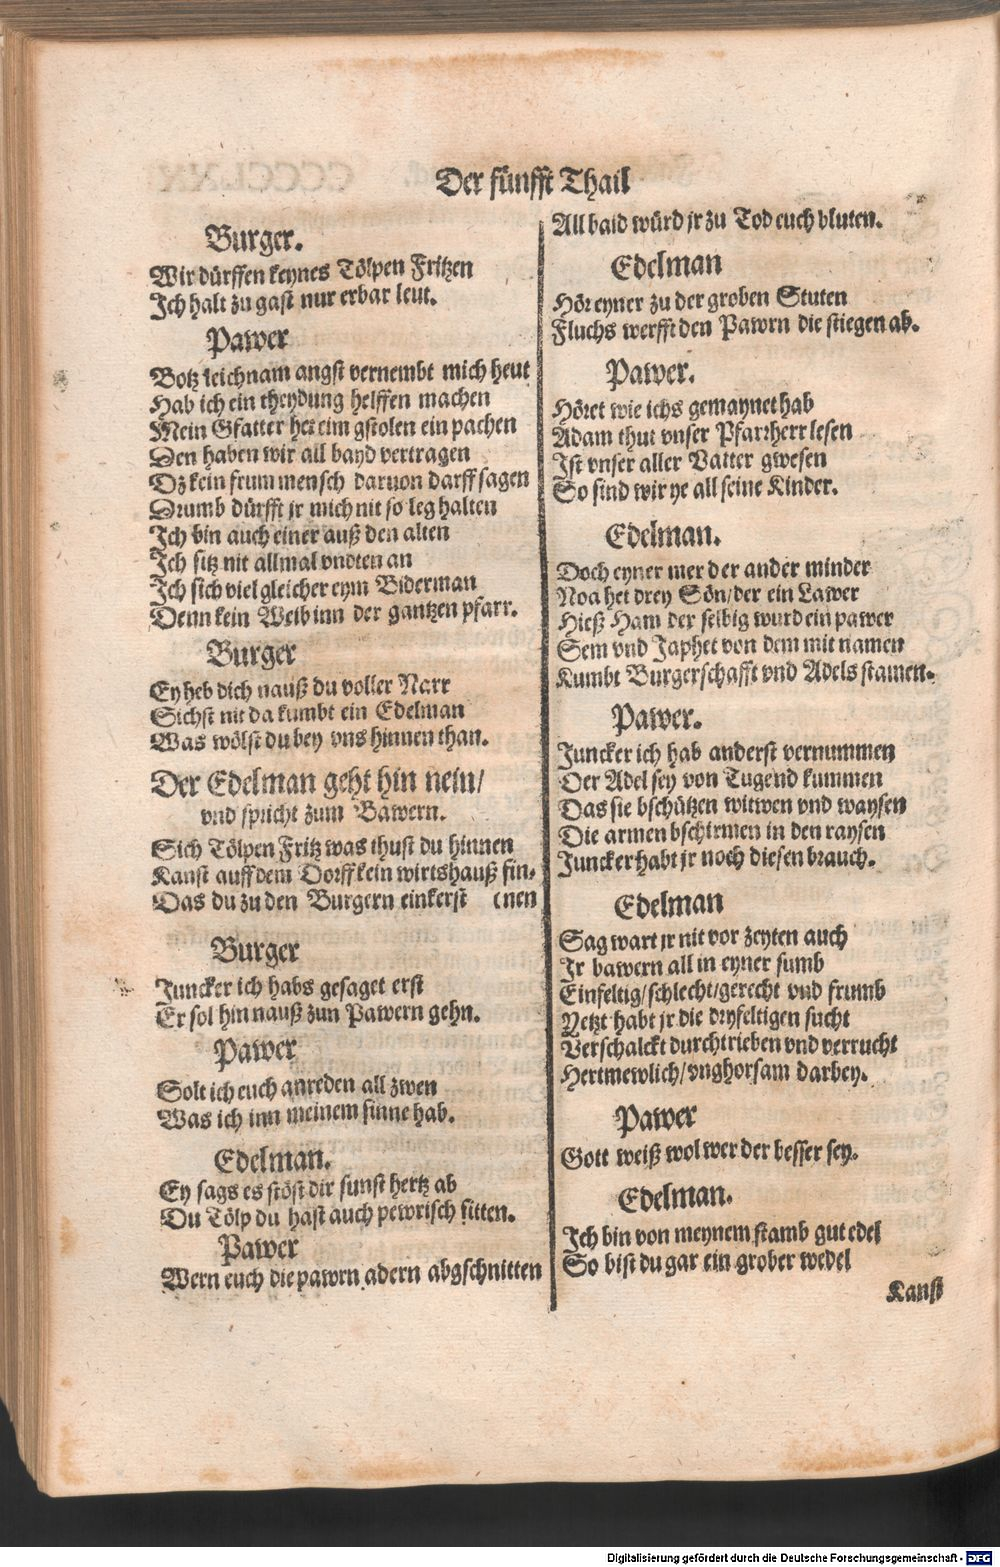 Der fünfft Thail
Burger.
Wir dürffen keynes Tölpen Fritzen
Ich halt zu gast nur erbar leut.
Pawer
Botz leichnam angst vernembt mich heut
Hab ich ein theydung helffen machen
Mein Gfatter het eim gstolen ein pachen
Den haben wir all bayd vertragen
Dz kein frum mensch daruon darff sagen
Drumb dürfft jr mich nit so leg halten
Ich bin auch einer auß den alten
Ich sitz nit allmal vndten an
Ich sich viel gleicher eym Biderman
Denn kein Weib inn der gantzen pfarr.
Burger
Ey heb dich nauß du voller Narr
Sichst nit da kumbt ein Edelman
Was wölst du bey vns hinnen than.
Der Edelman geht hin nein/
vnd spricht zum Bawern.
Sich Tölpen Fritz was thust du hinnen
Kanst auff dem Dorff kein wirtshauß fin-
Das du zu den Burgern einkerst (nen
Burger
Juncker ich habs gesaget erst
Er sol hin nauß zun Pawern gehn.
Pawer
Solt ich euch anreden all zwen
Was ich inn meinem sinne hab.
Edelman.
Ey sags es stöst dir sunst hertz ab
Du Tölp du hast auch pewrisch sitten.
Pawer
Wern euch die pawrn adern abgschnitten
All baid würd jr zu Tod euch bluten.
Edelman
Hör eyner zu der groben Stuten
Fluchs werfft den Pawrn die stiegen ab.
Pawer.
Höret wie ichs gemaynet hab
Adam thut vnser Pfarrherr lesen
Ist vnser aller Vatter gwesen
So sind wir ye all seine Kinder.
Edelman.
Doch eyner mer der ander minder
Noa het drey Sön/der ein Lawer
Hieß Ham der selbig wurd ein pawer
Sem vnd Japhet von dem mit namen
Kumbt Burgerschafft vnd Adels stamen.
Pawer.
Juncker ich hab anderst vernummen
Der Adel sey von Tugend kummen
Das sie bschützen witwen vnd waysen
Die armen bschirmen in den raysen
Juncker habt jr noch diesen brauch.
Edelman
Sag wart jr nit vor zeyten auch
Ir bawern all in eyner sumb
Einfeltig/schlecht/gerecht vnd frumb
Yetzt habt jr die dryfeltigen sucht
Verschalckt durchtrieben vnd verrucht
Hertmewlich/vnghorsam darbey.
Pawer
Gott weiß wol wer der besser sey.
Edelman.
Ich bin von meynem stamb gut edel
So bist du gar ein grober wedel
Kanst
Digitalisierung gefördert durch die Deutsche Forschungsgemeinschaft - DFG